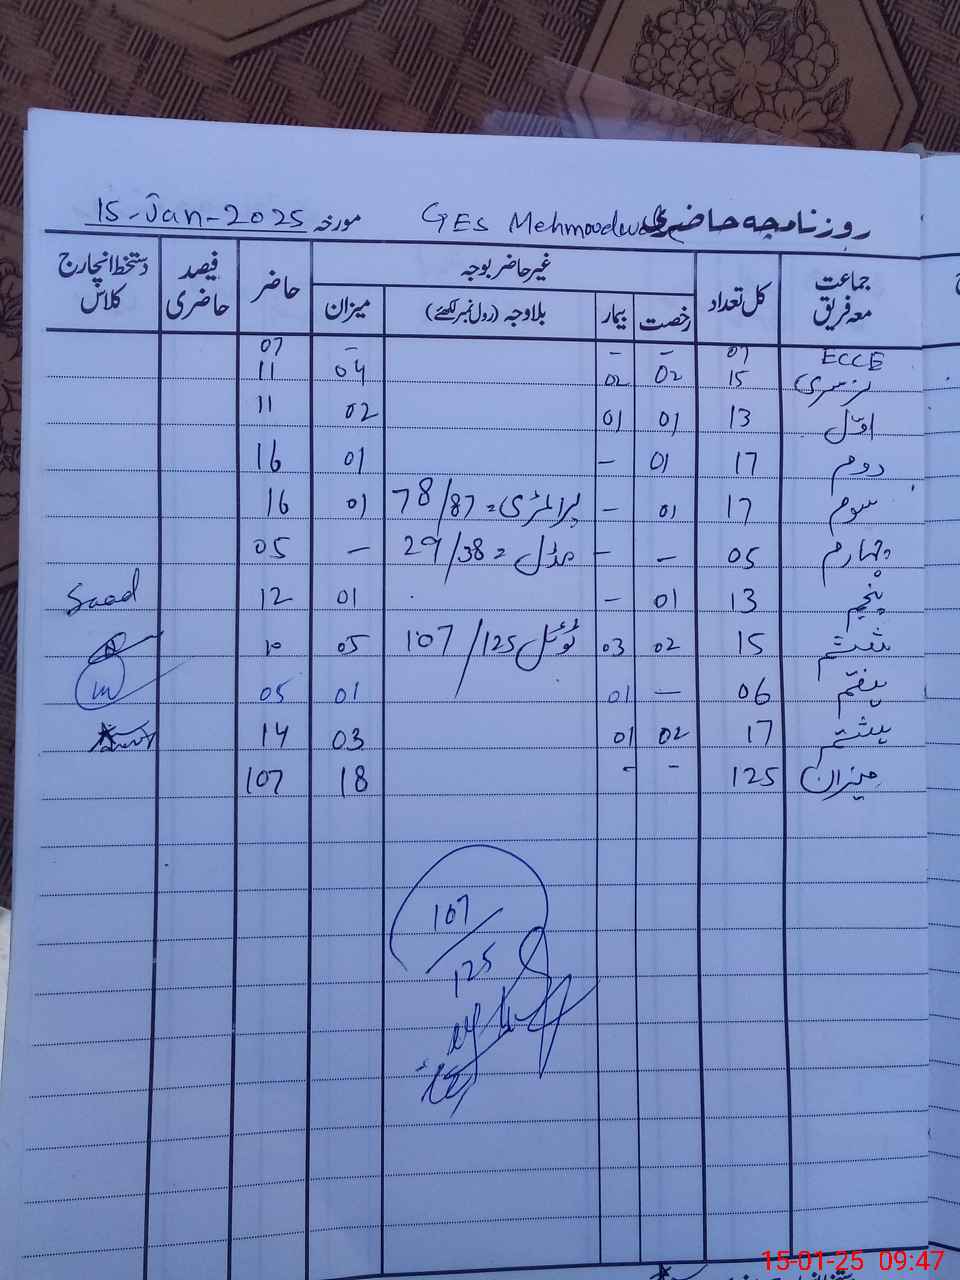 روزنامچہ حاضری GES Mehmoodwala مورخہ 15-Jan-2025
جماعت معہ فریق کل تعداد غیر حاضر بوجہ حاضر فیصد حاضری دستخط انچارج کلاس
رخصت بیمار بلاوجہ (رول نمبر لکھئے) میزان
ECCE 07 - - - 07
نرسری 15 02 02 04 11
اوّل 13 01 01 02 11
دوم 17 01 - 01 16
سوم 17 01 - پرائمری = 78/87 01 16
چہارم 05 - - مڈل = 29/38 - 05
پنجم 13 01 - 01 12 Saad
ششم 15 02 03 ٹوٹل 107/125 05 10
ہفتم 06 - 01 01 05
ہشتم 17 02 01 03 14
میزان 125 - - 18 107
107
125
15-01-25 09:47